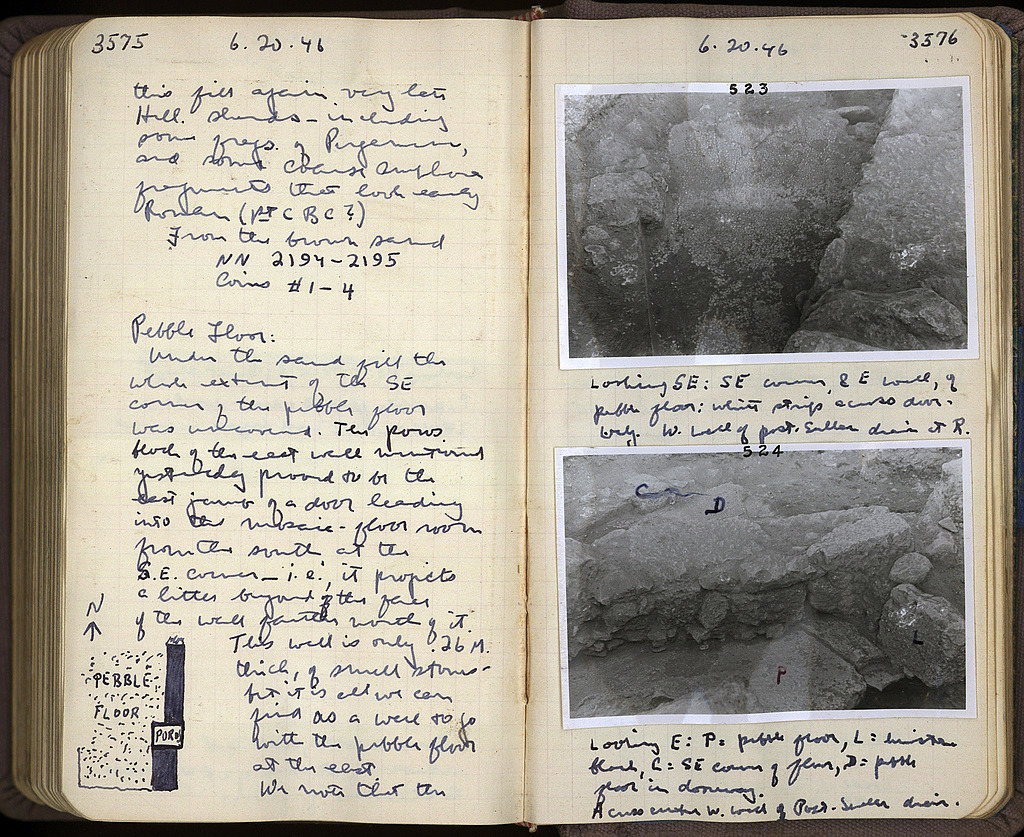 3575
6.20.46
this fill again very late
Hell. sherds - including
some frags. of Pergamene,
and some coarse amphora
fragments that look early
Roman (1st C BC?)
From the brown sand
NN 2194-2195
Coins #1-4
Pebble Floor:
Under the sand fill the
whole extent of the SE
corner of the pebble floor
was uncovered. The poros
block of the east wall mentioned
yesterday proved to be the
east jamb of a door leading
into the mosaic-floor room
from the south at the
S.E. corner - i.e., it projects
a little beyond the face
of the wall farther north of it.
This wall is only .26 M.
thick, of small stones -
but it is all we can
find as a wall to go
with the pebble floor
at the east.
We note that the
N
PEBBLE
FLOOR
POROS
6.20.46
3576
523
Looking SE: SE corner, & E wall, of
pebble floor; white strip across door-
way. W. wall of post-Sullan drain at R.
524
C
D
L
P
Looking E: P= pebble floor, L= limestone
block, C= SE corner of floor, D= pebble
floor in doorway.
Across center W. wall of Post-Sullan drain.